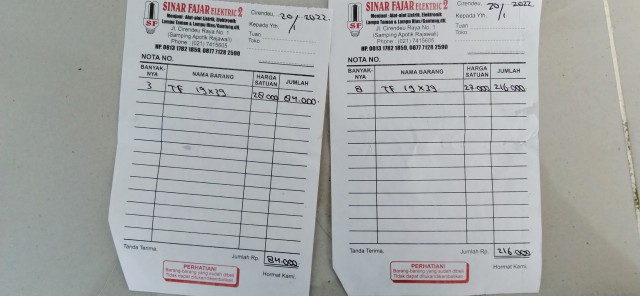 SINAR FAJAR ELEKTRIC 2
Menjual : Alat-alat Listrik, Elektronik
Lampu Taman & Lampu Hias/Gantung, dll
Jl. Cirendeu Raya No. 1
(Samping Apotik Rajawali)
Phone : (021) 7415605
HP. 0813 1782 1859, 0877 7128 2590
SF
Cirendeu, 20/1 2022
Kepada Yth.
Tuan
Toko
NOTA NO.
BANYAK-NYA NAMA BARANG HARGA SATUAN JUMLAH
3 TF 19 x 39 28.000 84.000
Tanda Terima, Jumlah Rp. 84.000
PERHATIAN!
Barang-barang yang sudah dibeli
Tidak dapat ditukar/dikembalikan
Hormat Kami,
SINAR FAJAR ELEKTRIC 2
Menjual : Alat-alat Listrik, Elektronik
Lampu Taman & Lampu Hias/Gantung, dll
Jl. Cirendeu Raya No. 1
(Samping Apotik Rajawali)
Phone : (021) 7415605
HP. 0813 1782 1859, 0877 7128 2590
SF
Cirendeu, 20/1 2022
Kepada Yth.
Tuan
Toko
NOTA NO.
BANYAK-NYA NAMA BARANG HARGA SATUAN JUMLAH
8 TF 19 x 39 27.000 216.000
Tanda Terima, Jumlah Rp. 216.000
PERHATIAN!
Barang-barang yang sudah dibeli
Tidak dapat ditukar/dikembalikan
Hormat Kami,